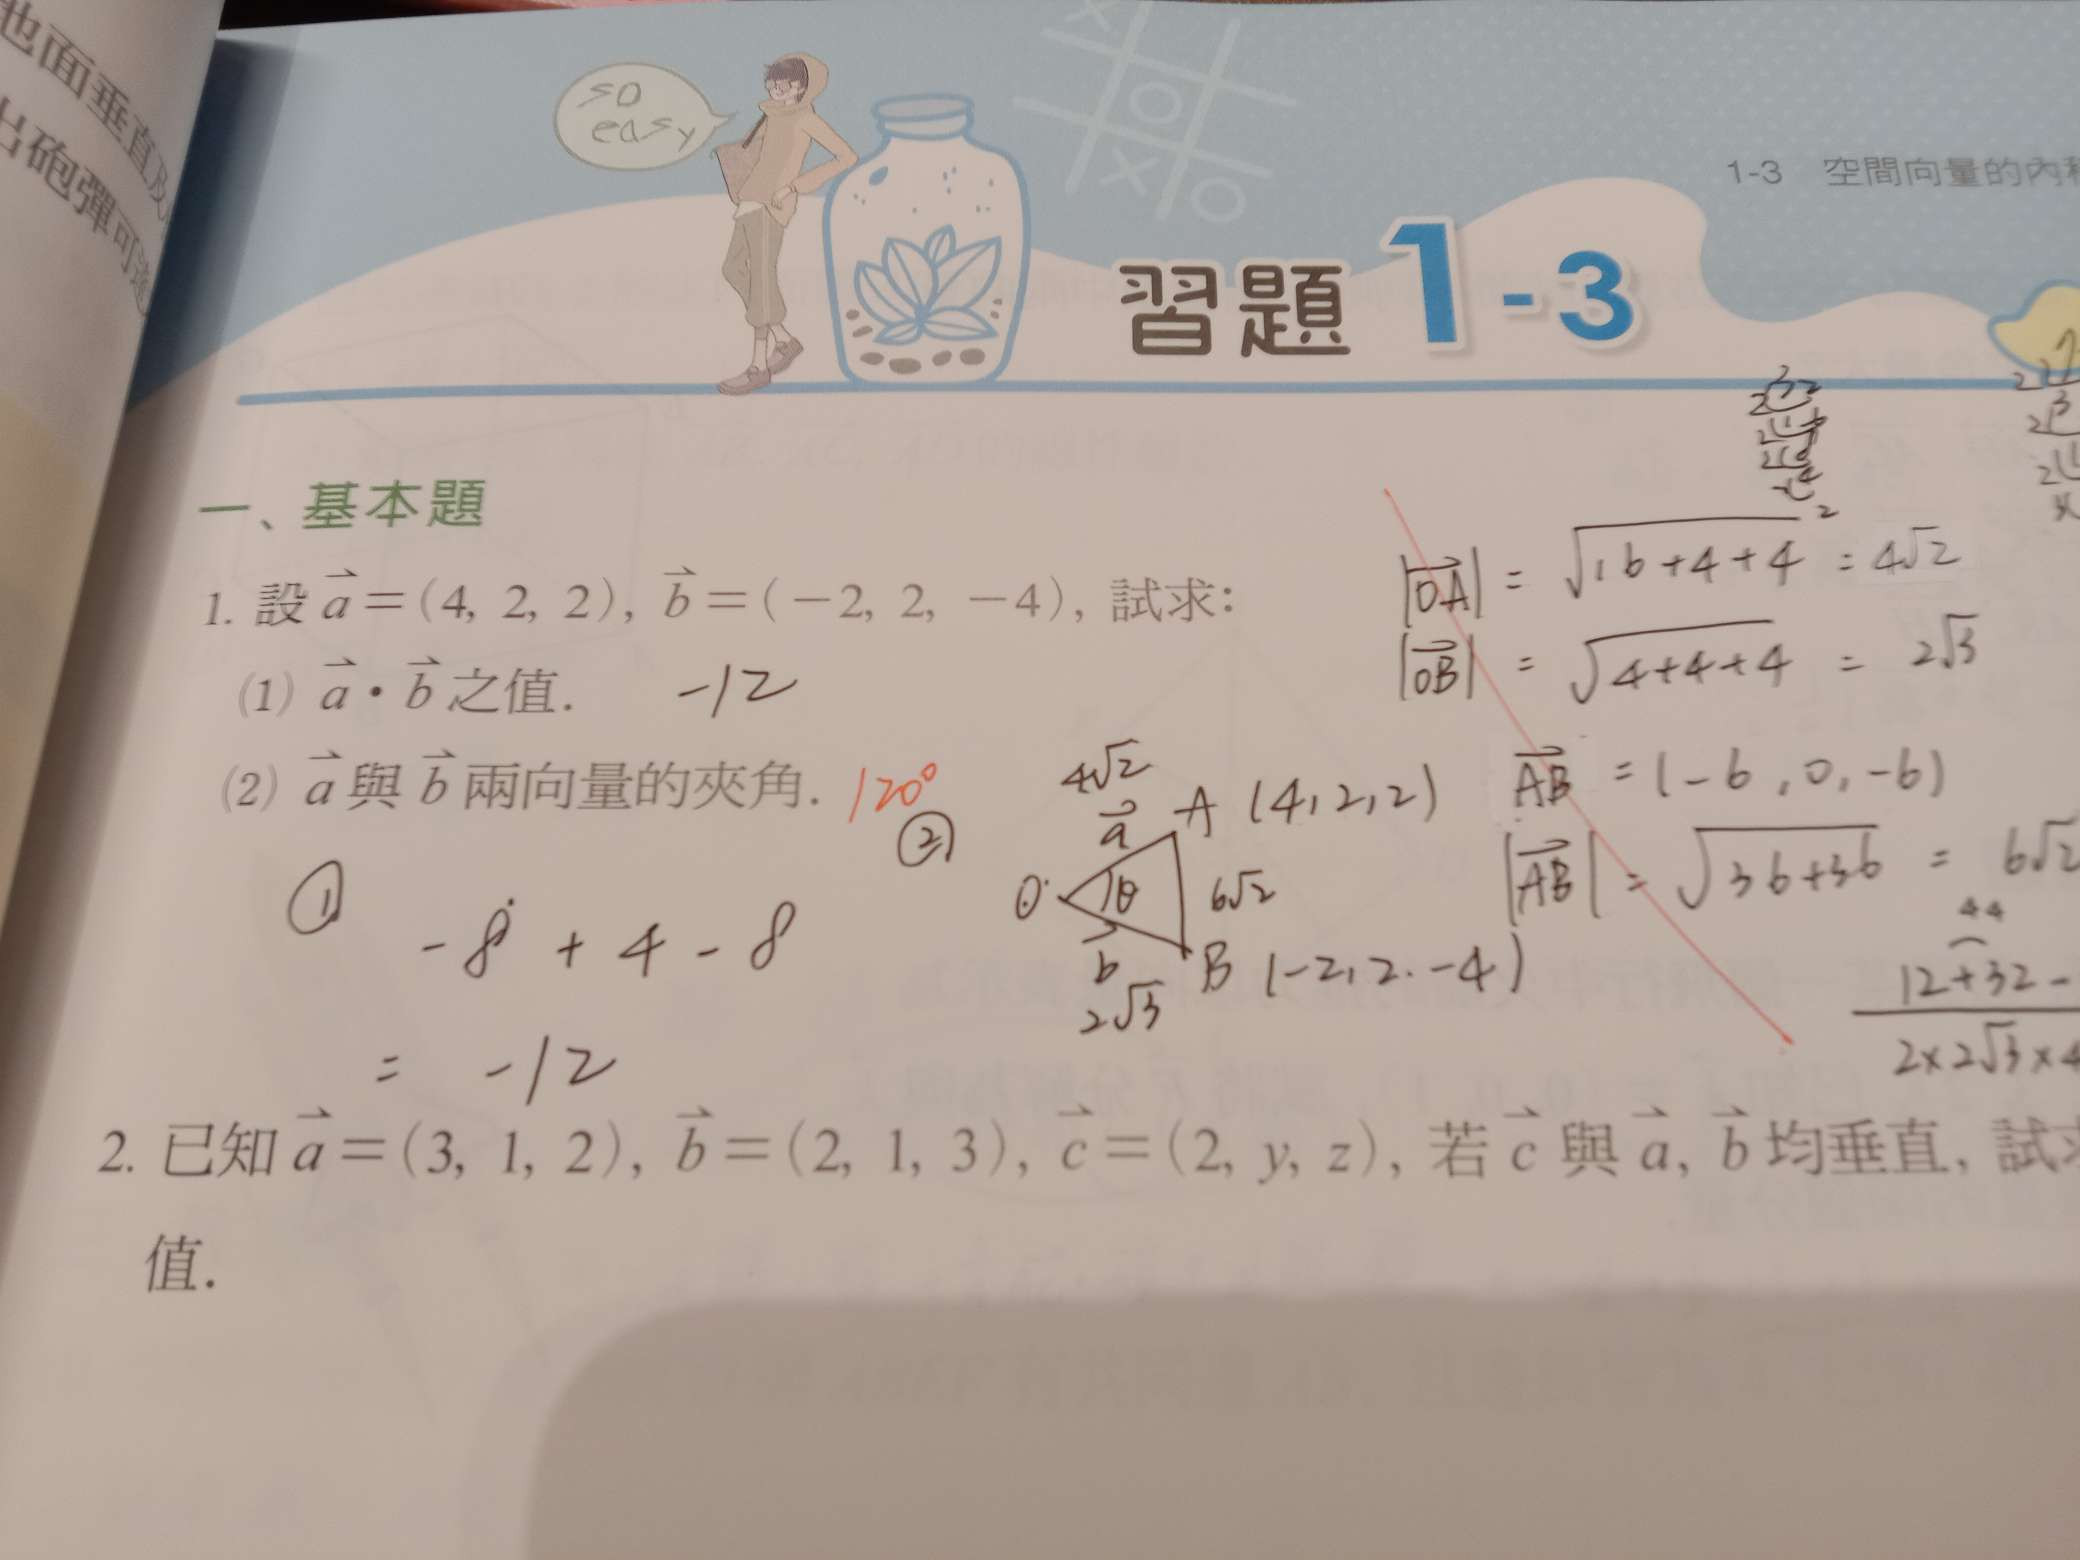 也面垂直及
出砲彈可
so
easy
1-3 空間向量的內
習題 1-3
一、基本題
1. 設 a⃗=(4, 2, 2), b⃗=(−2, 2, −4), 試求:
(1) a⃗·b⃗ 之值. -12
(2) a⃗ 與 b⃗ 兩向量的夾角. 120°
① -8 + 4 - 8
= -12
②
4√2
a⃗ A (4,2,2)
O θ 6√2
b⃗ B (-2,2.-4)
2√3
32
|OA⃗| = √16+4+4 ² = 4√2
|OB⃗| = √4+4+4 = 2√3
AB⃗ = (-6,0,-6)
|AB⃗| = √36+36 = 6√2
44
12+32-
2×2√3×4
2. 已知 a⃗=(3, 1, 2), b⃗=(2, 1, 3), c⃗=(2, y, z), 若 c⃗ 與 a⃗, b⃗ 均垂直, 試求
值.